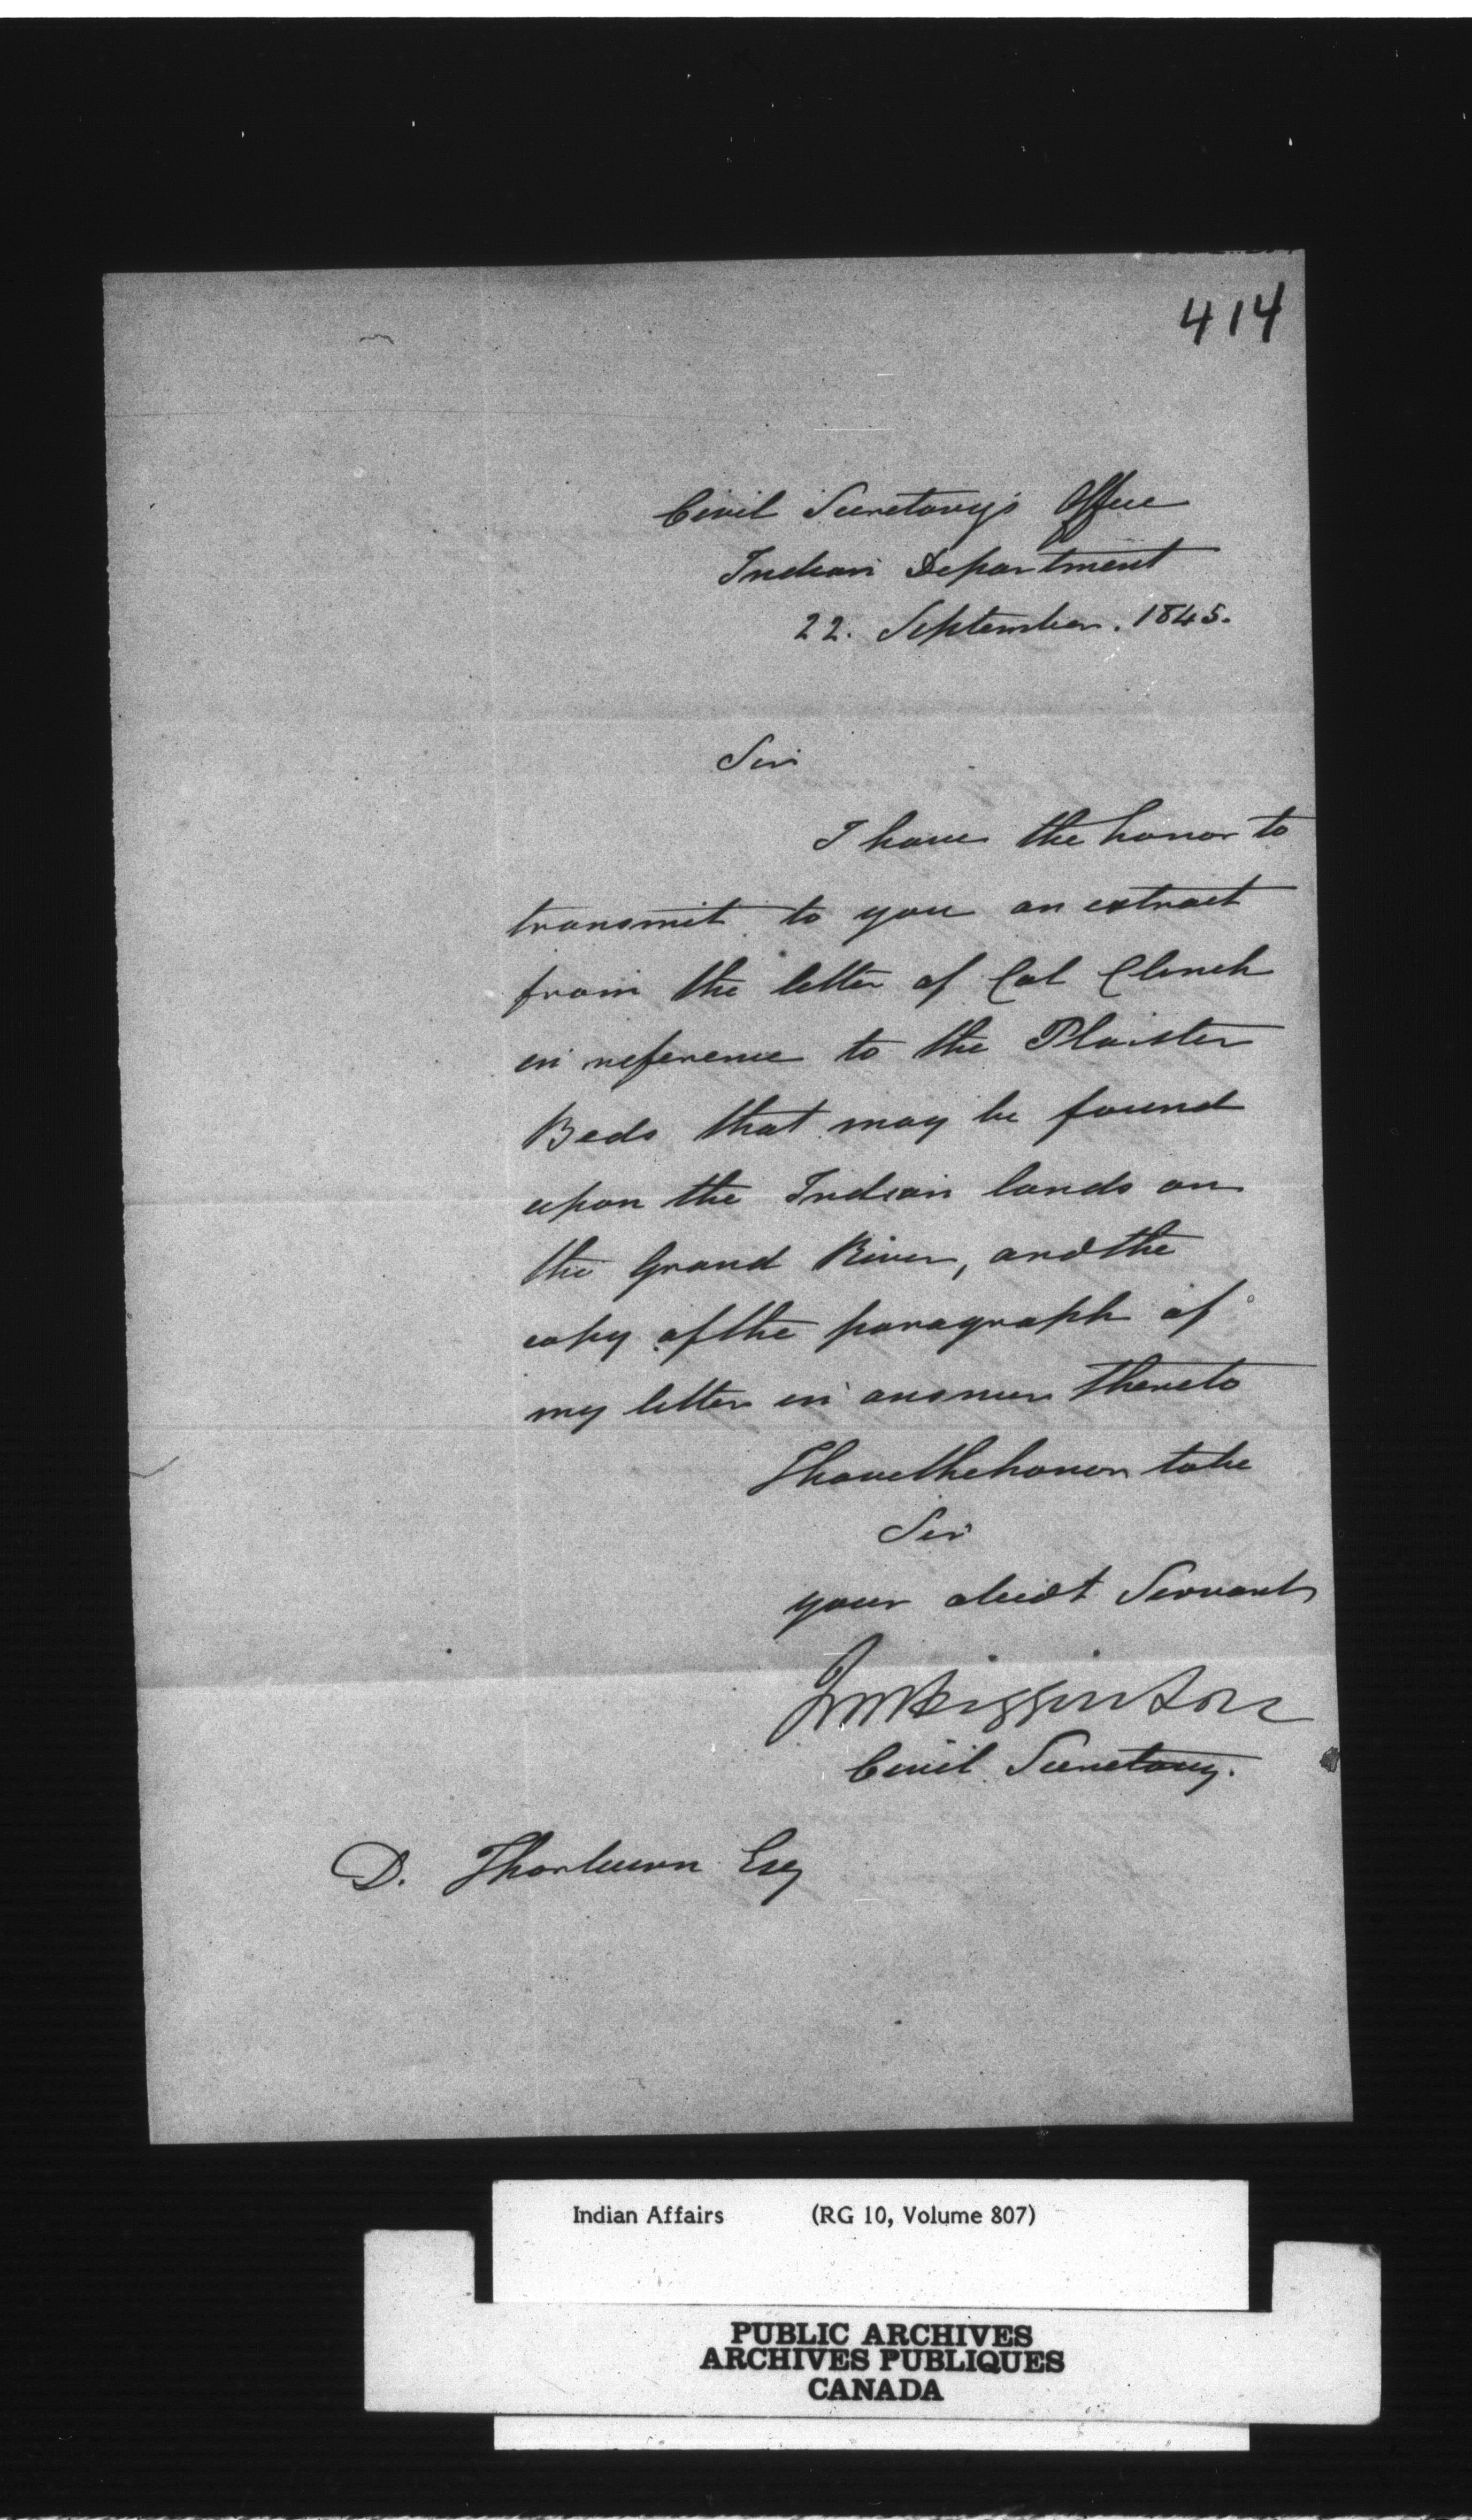 414
Civil Secretary's Office
Indian Department
22. September. 1845.
Sir
I have the honor to
transmit to you an extract
from the letter of Col Clench
in reference to the Plaister
Beds that may be found
upon the Indian lands on
the Grand River, and the
copy of the paragraph of
my letter in answer thereto
I have the honor to be
Sir
your obedt Servant
JM Higginson
Civil Secretary.
D. Thorburn Esq
Indian Affairs (RG 10, Volume 807)
PUBLIC ARCHIVES
ARCHIVES PUBLIQUES
CANADA